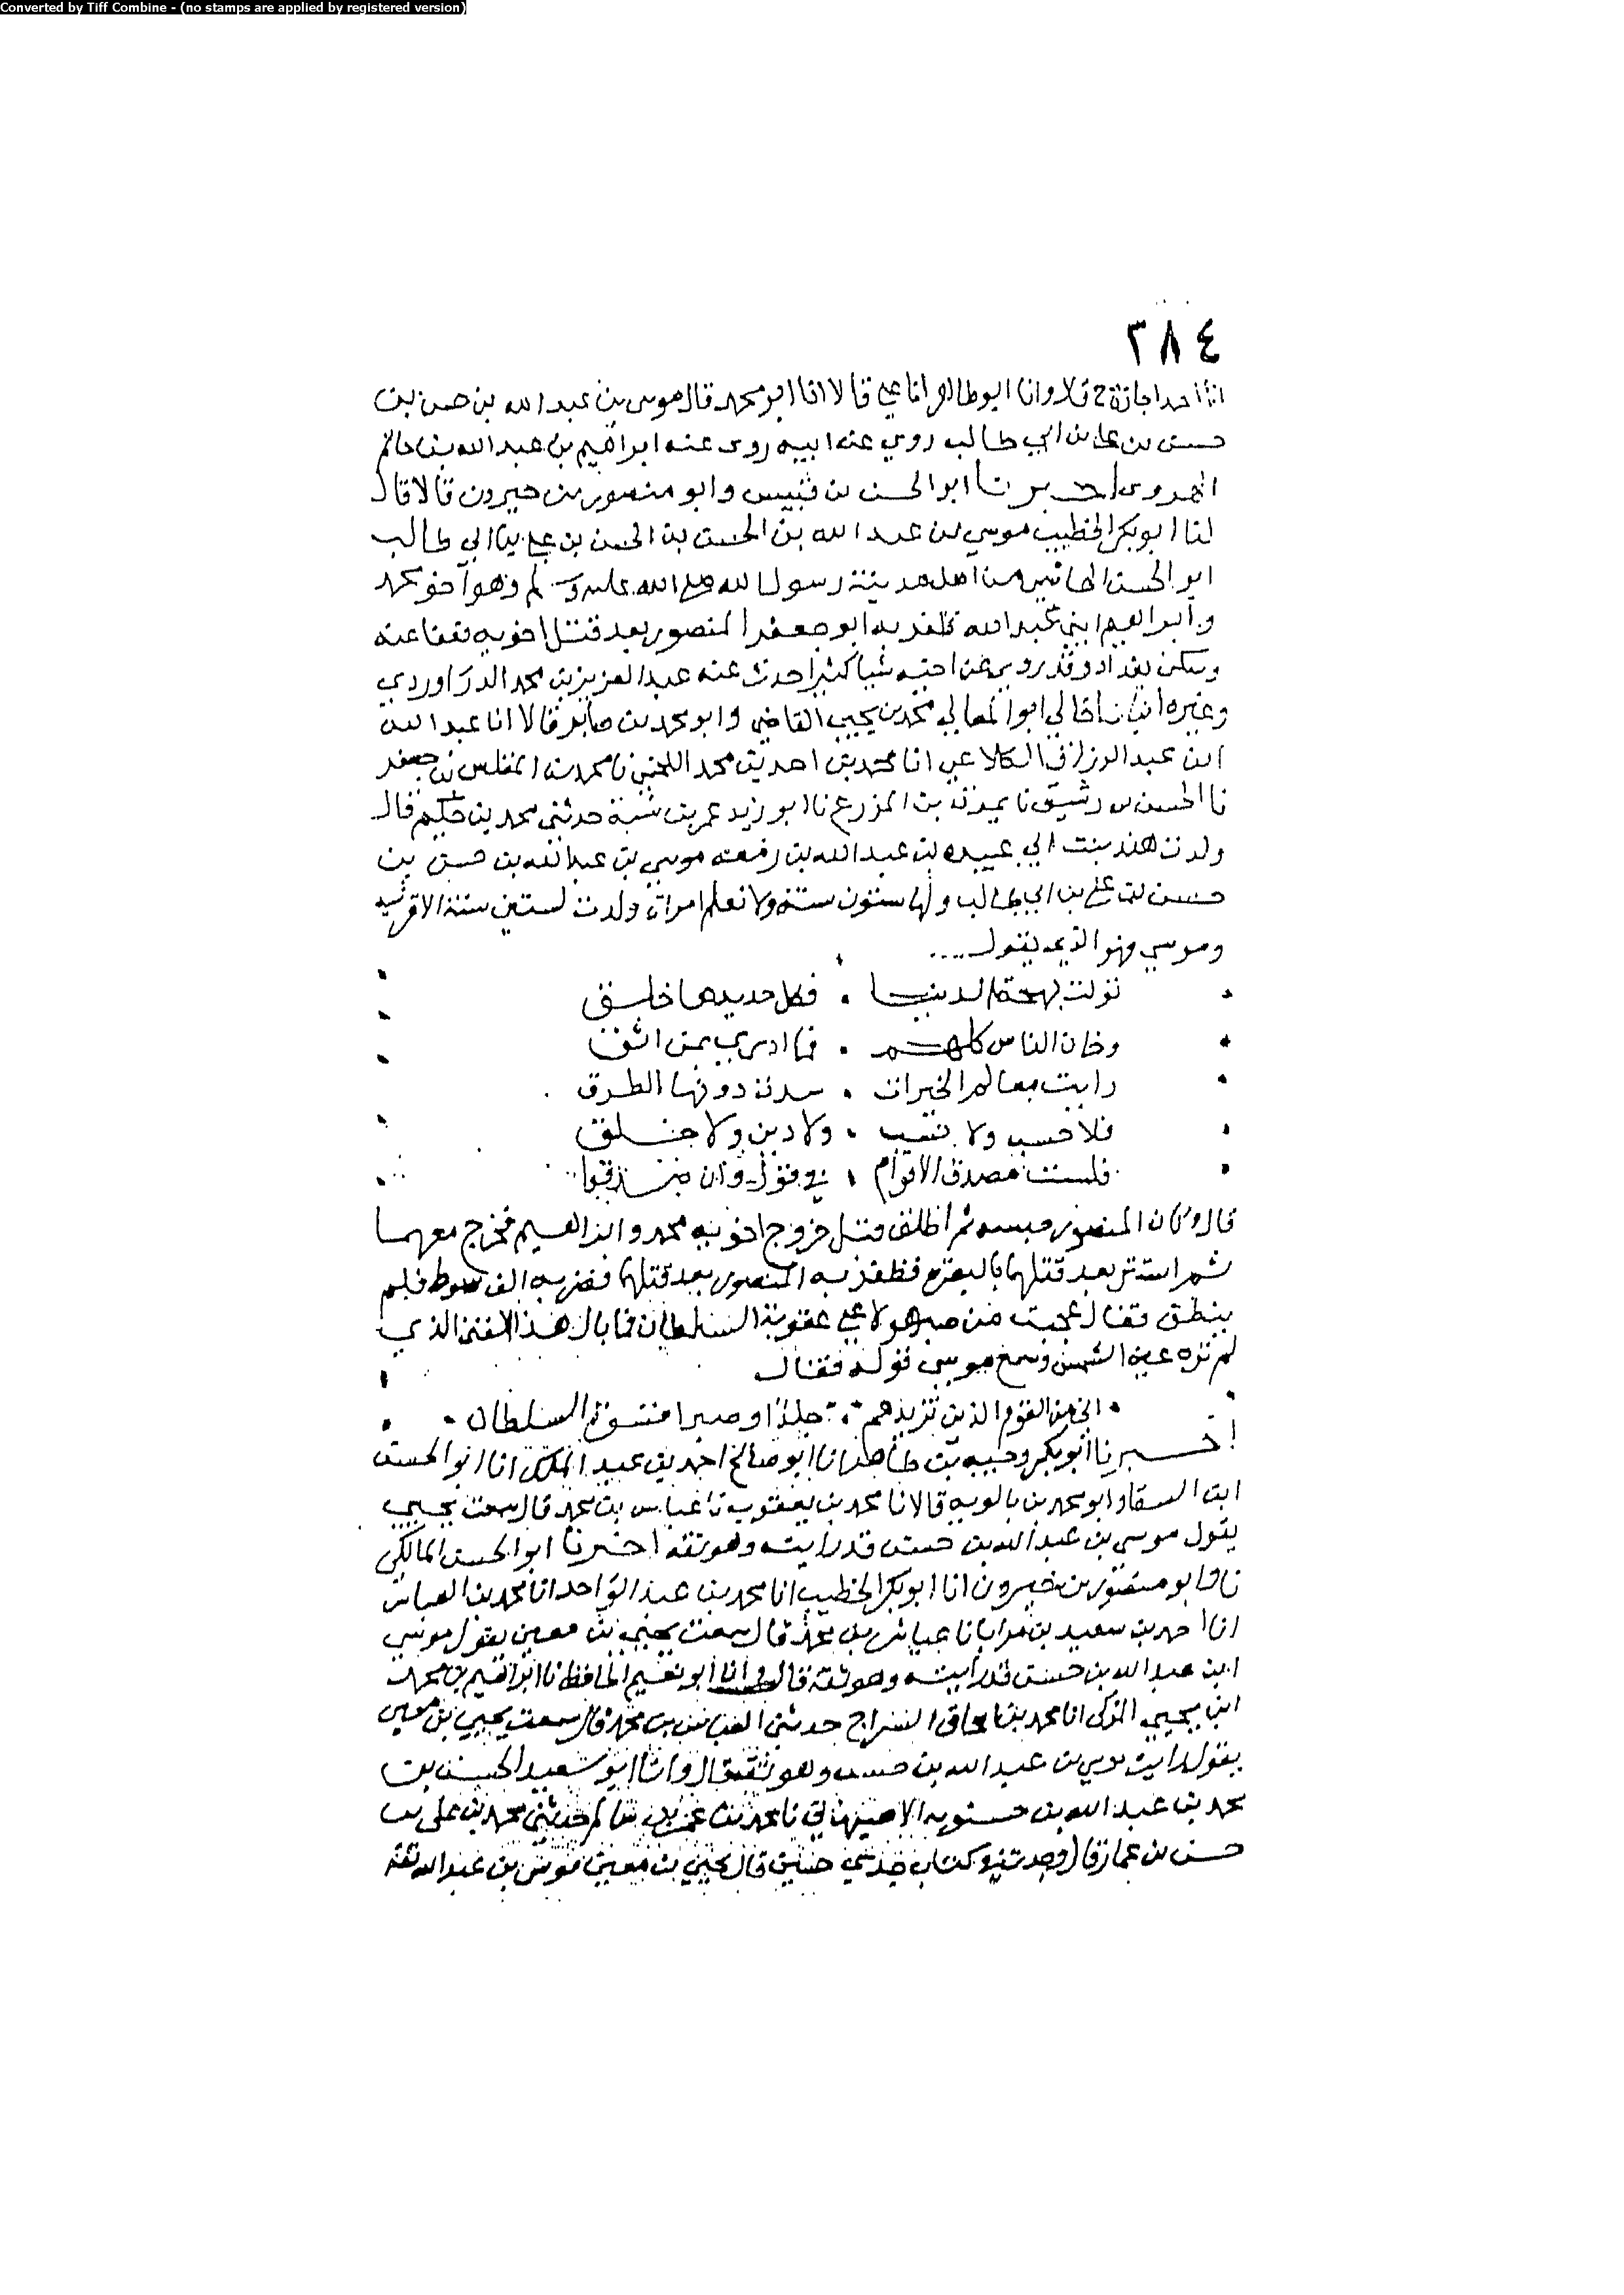 Converted by Tiff Combine - (no stamps are applied by registered version)
٣٨٤
انا احمد اجازة ح قال وانا ابو طاهر انا علي قالا انا ابو محمد قال موسى بن عبد الله بن حسن بن
حسن بن علي بن ابي طالب روي عن ابيه روى عنه ابراهيم بن عبد الله بن حاتم
الهروي اخبرنا ابو الحسن بن قبيس وابو منصور بن خيرون قالا قال
لنا ابو بكر الخطيب موسي بن عبد الله بن الحسن بن الحسن بن علي بن ابي طالب
ابو الحسن الهاشمي من اهل مدينة رسول الله صلى الله عليه وسلم وهو اخو محمد
وابراهيم ابني عبد الله ظفر به ابو جعفر المنصور بعد قتل اخويه فعفا عنه
وسكن بغداد وقد روي عن ابيه شيا كثيرا حدث عنه عبد العزيز بن محمد الدراوردي
وغيره انبانا خالي ابو المعالي محمد بن يحيى القاضي وابو محمد بن صابر قالا انا عبد الله
ابن عبد الرزاق الكلاعي انا محمد بن احمد بن محمد نا محمد بن المفلس بن جعفر
نا الحسن بن رشيق نا يموت بن المزرع نا ابو زيد عمر بن شبة حدثني محمد بن حكيم قال
ولدت هند بنت ابي عبيدة بن عبد الله بن زمعة موسي بن عبد الله بن حسن بن
حسن بن علي بن ابي طالب ولها ستون سنة ولا نعلم امراة ولدت لستين سنة الا قرشية
وموسي وهو الذي يقول
تولت بهجة الدنيا . فكل جديدها خلق
وخان الناس كلهم . فما ادري بمن اثق
رايت معالم الخيرات . سدت دونها الطرق
فلا حسب ولا نسب . ولا دين ولا خلق
فلست مصدق الاقوام . في قول وان صدقوا
قال وكان المنصور حبسه ثم اطلقه قبل خروج اخويه محمد وابراهيم فخرج معهما
ثم استتر بعد قتلهما بالبصرة فظفر به المنصور بعد قتلهما فضربه الف سوط فلم
ينطق فقال عجبت من صبر هولا علي عقوبة السلطان فما بال هذا الفتى الذي
لم تره عين الشمس وسمع موسي قوله فقال
اني من القوم الذين تزيدهم . جلدا وصبرا قسوة السلطان
اخبرنا ابو بكر وجيه بن طاهر انا ابو صالح احمد بن عبد الملك انا ابو الحسن
ابن السقا وابو محمد بن بالويه قالا نا محمد بن يعقوب نا عباس بن محمد قال سمعت يحيى
يقول موسى بن عبد الله بن حسن قد رايته وهو ثقة اخبرنا ابو الحسن المالكي
نا وابو منصور بن خيرون انا ابو بكر الخطيب انا محمد بن عبد الواحد انا محمد بن العباس
انا احمد بن سعيد بن مرابا نا عباس بن محمد قال سمعت يحيى بن معين يقول موسي
ابن عبد الله بن حسن قد رايته وهو ثقة قال وانا ابو نعيم الحافظ نا ابراهيم بن محمد
ابن يحيى المزكى انا محمد بن اسحاق السراج حدثني العباس بن محمد قال سمعت يحيى بن معين
يقول رايت موسي بن عبد الله بن حسن وهو ثقة قال وانا ابو سعيد الحسن بن
محمد بن عبد الله بن حسنويه الاصبهاني نا محمد بن عمر بن سالم حدثني محمد بن علي بن
حسن بن عمار قال وجدت في كتاب جدي حسين قال يحيى بن معين موسى بن عبد الله ثقة